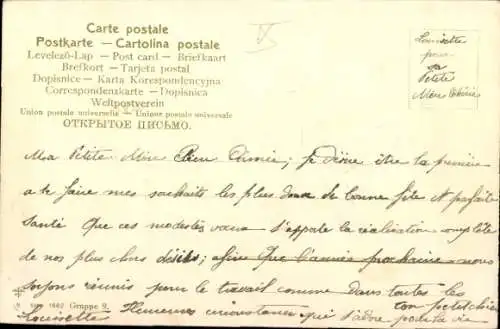 Carte postale
Postkarte — Cartolina postale
Levelező-Lap — Post card — Briefkaart
Brefkort — Tarjeta postal
Dopisnice — Karta Korespondencyjna
Correspondenzkarte — Dopisnica
Weltpostverein
Union postale universelle — Unione postale universale
ОТКРЫТОЕ ПИСЬМО.
Louisette
pour
sa
Petite
Mère Chérie
Ma Petite Mère Bien Aimée; je désire être la première
a te faire mes souhaits les plus doux de bonne fête et parfaite
santé Que ces modestes vœux s'appelle la réalisation complète
de nos plus chers désirs; afin Que l'année prochaine nous
soyons réunis pour le travail comme dans toutes les
Heureuses circonstances ton petit chien
Louisette qui t'adore pour la vie
Gruppe 9.